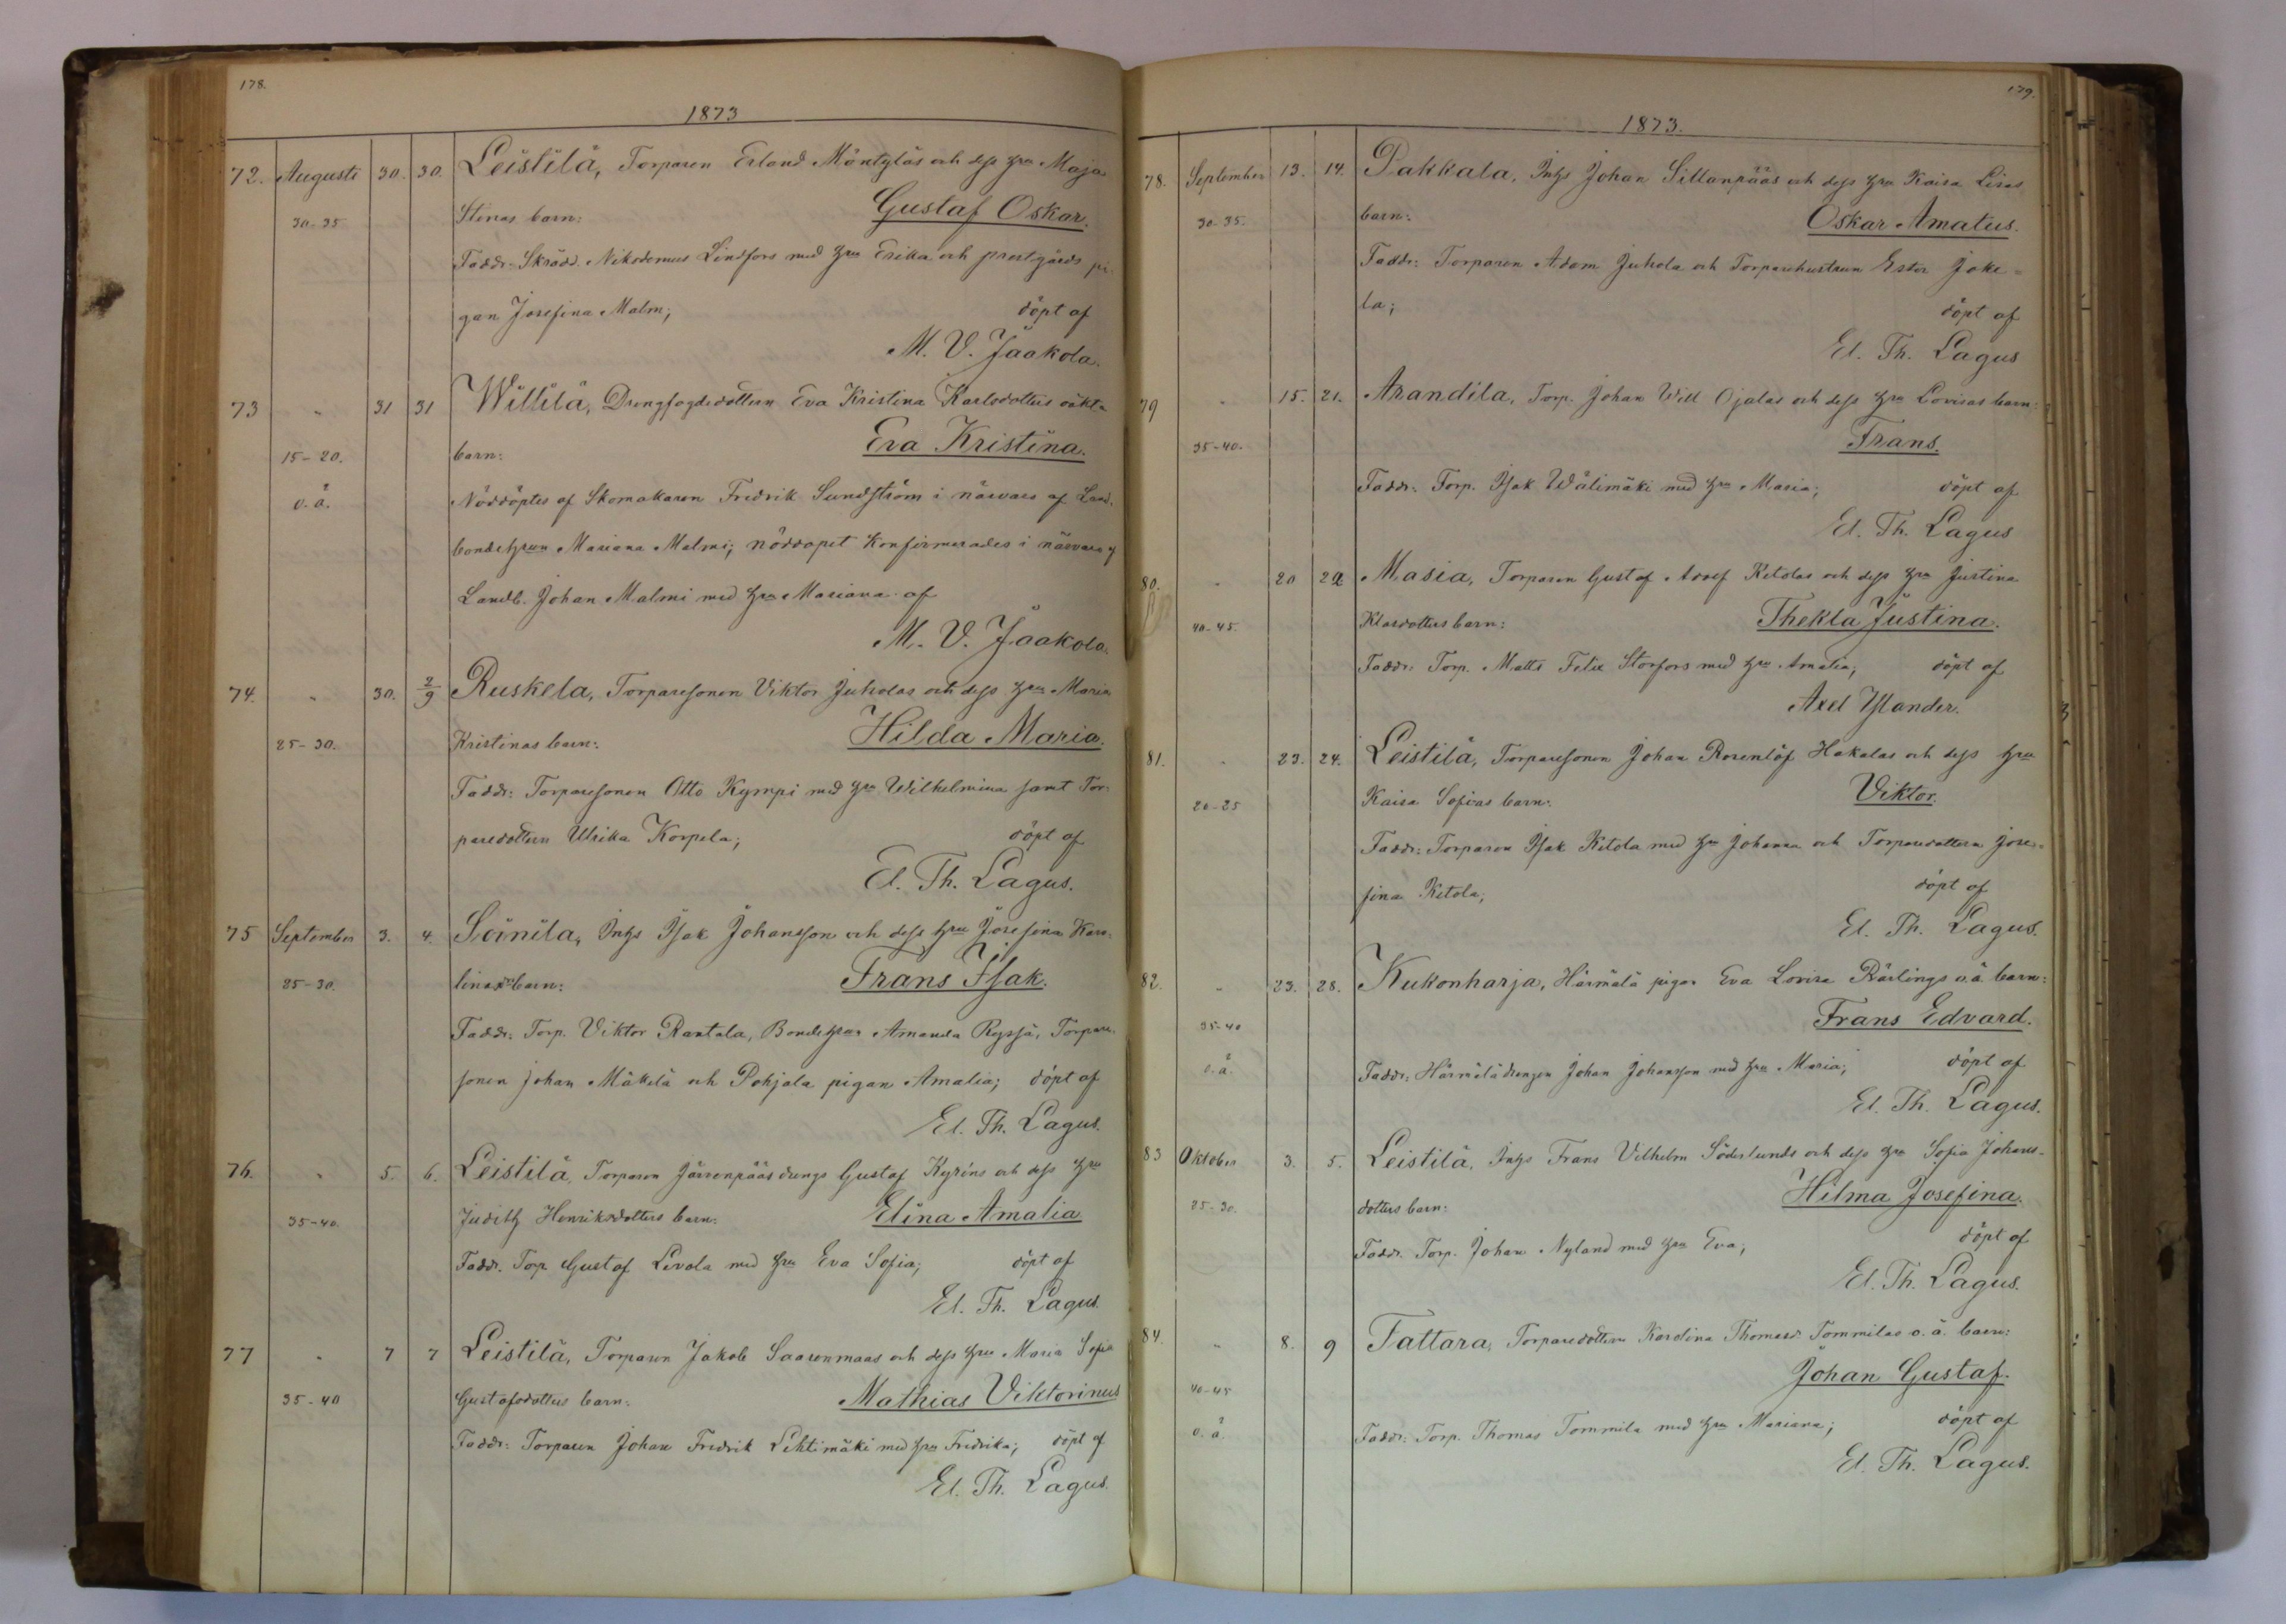 178.
1873
72. Augusti 30. 30. Leistilä, Torparen Erland Mäntyläs och dess hru Maja
30-35 Stinas barn: Gustaf Oskar.
Faddr: Skrädd. Nikodemus Lindfors med hru Erika och prestgårds pi-
gan Josefina Malm; döpt af
M. V. Jaakola.
73 " 31 31 Willilä, Drengfogdedottern Eva Kristina Karlsdotters oäkta
15-20. barn: Eva Kristina.
o.ä. Nöddöptes af Skomakaren Fredrik Sundström i närvaro af Land-
bondehrun Mariana Malmi; nöddopet konfirmerades i närvaro af
Landb. Johan Malmi med hru Mariana af
M. V. Jaakola.
74. " 30. 2/9 Ruskela, Torparesonen Viktor Juholas och dess hru Maria
25-30. Kristinas barn: Hilda Maria.
Faddr: Torparesonen Otto Kympi med hru Wilhelmina samt Tor-
paredottern Ulrika Korpela; döpt af
El. Th. Lagus.
75 September 3. 4. Soinila, Inhs Isak Johansson och dess hru Josefina Karo-
25-30. linas barn: Frans Isak.
Faddr: Torp. Viktor Rantala, Bondehrun Amanda Ryssä, Torpare-
sonen Johan Mäkelä och Pohjala pigan Amalia; döpt af
El. Th. Lagus.
76. " 5. 6. Leistilä, Torparen Järvenpääs drengs Gustaf Kyréns och dess hru
35-40. Judith Henriksdotters barn: Elina Amalia
Faddr. Torp Gustaf Levola med hru Eva Sofia; döpt af
El. Th. Lagus.
77 " 7 7 Leistilä, Torparen Jakob Saarenmaas och dess hru Maria Sofia
35-40 Gustafsdotters barn: Mathias Viktorinus
Faddr: Torparen Johan Fredrik Lehtimäki med hru Fredrika; döpt af
El. Th. Lagus.
179.
1873.
78. September 13. 14. Pakkala, Inhs Johan Sillanpääs och dess hru Kaisa Lisas
30-35. barn: Oskar Amatus.
Faddr: Torparen Adam Juhola och Torparehustrun Ester Joke-
la; döpt af
El. Th. Lagus
79 " 15. 21. Arandila, Torp. Johan Will Ojalas och dess hru Lovisas barn:
35-40. Frans.
Faddr: Torp. Isak Wälimäki med hru Maria; döpt af
El. Th. Lagus
80. " 20 22 Masia, Torparen Gustaf Adolf Ketolas och dess hru Justina
40-45. Klasdotters barn: Thekla Justina.
Faddr. Torp. Matts Felix Storfors med hru Amalia; döpt af
Axel Ylander.
81. " 23. 24. Leistilä, Torparesonen Johan Rosenlöf Hakalas och dess hru
20-25 Kaisa Sofias barn: Viktor.
Faddr: Torparen Isak Ketola med hru Johanna och Torparedottern Jose-
fina Ketola; döpt af
El. Th. Lagus.
82. " 23. 28. Kukonharja, Härmälä pigan Eva Lovisa Pärlings o.ä. barn:
35-40 Frans Edvard.
o.ä. Faddr: Härmälä drengen Johan Johansson med hru Maria; döpt af
El. Th. Lagus.
83 Oktober 3. 5. Leistilä, Inhs Frans Vilhelm Söderlunds och dess hru Sofia Johans-
25-30. dotters barn: Hilma Josefina.
Faddr. Torp. Johan Nyland med hru Eva; döpt af
El. Th. Lagus.
84. " 8. 9 Tattara, Torparedottern Karolina Thomasd. Tommilas o.ä. barn:
40-45 Johan Gustaf.
o.ä. Faddr: Torp. Thomas Tommila med hru Mariana; döpt af
El. Th. Lagus.